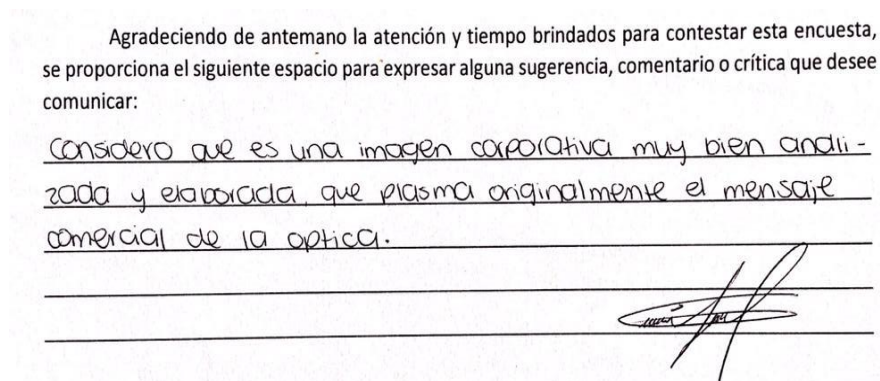 Agradeciendo de antemano la atención y tiempo brindados para contestar esta encuesta,
se proporciona el siguiente espacio para expresar alguna sugerencia, comentario o crítica que desee
comunicar:
Considero que es una imagen corporativa muy bien anali-
zada y elaborada, que plasma originalmente el mensaje
comercial de la optica.